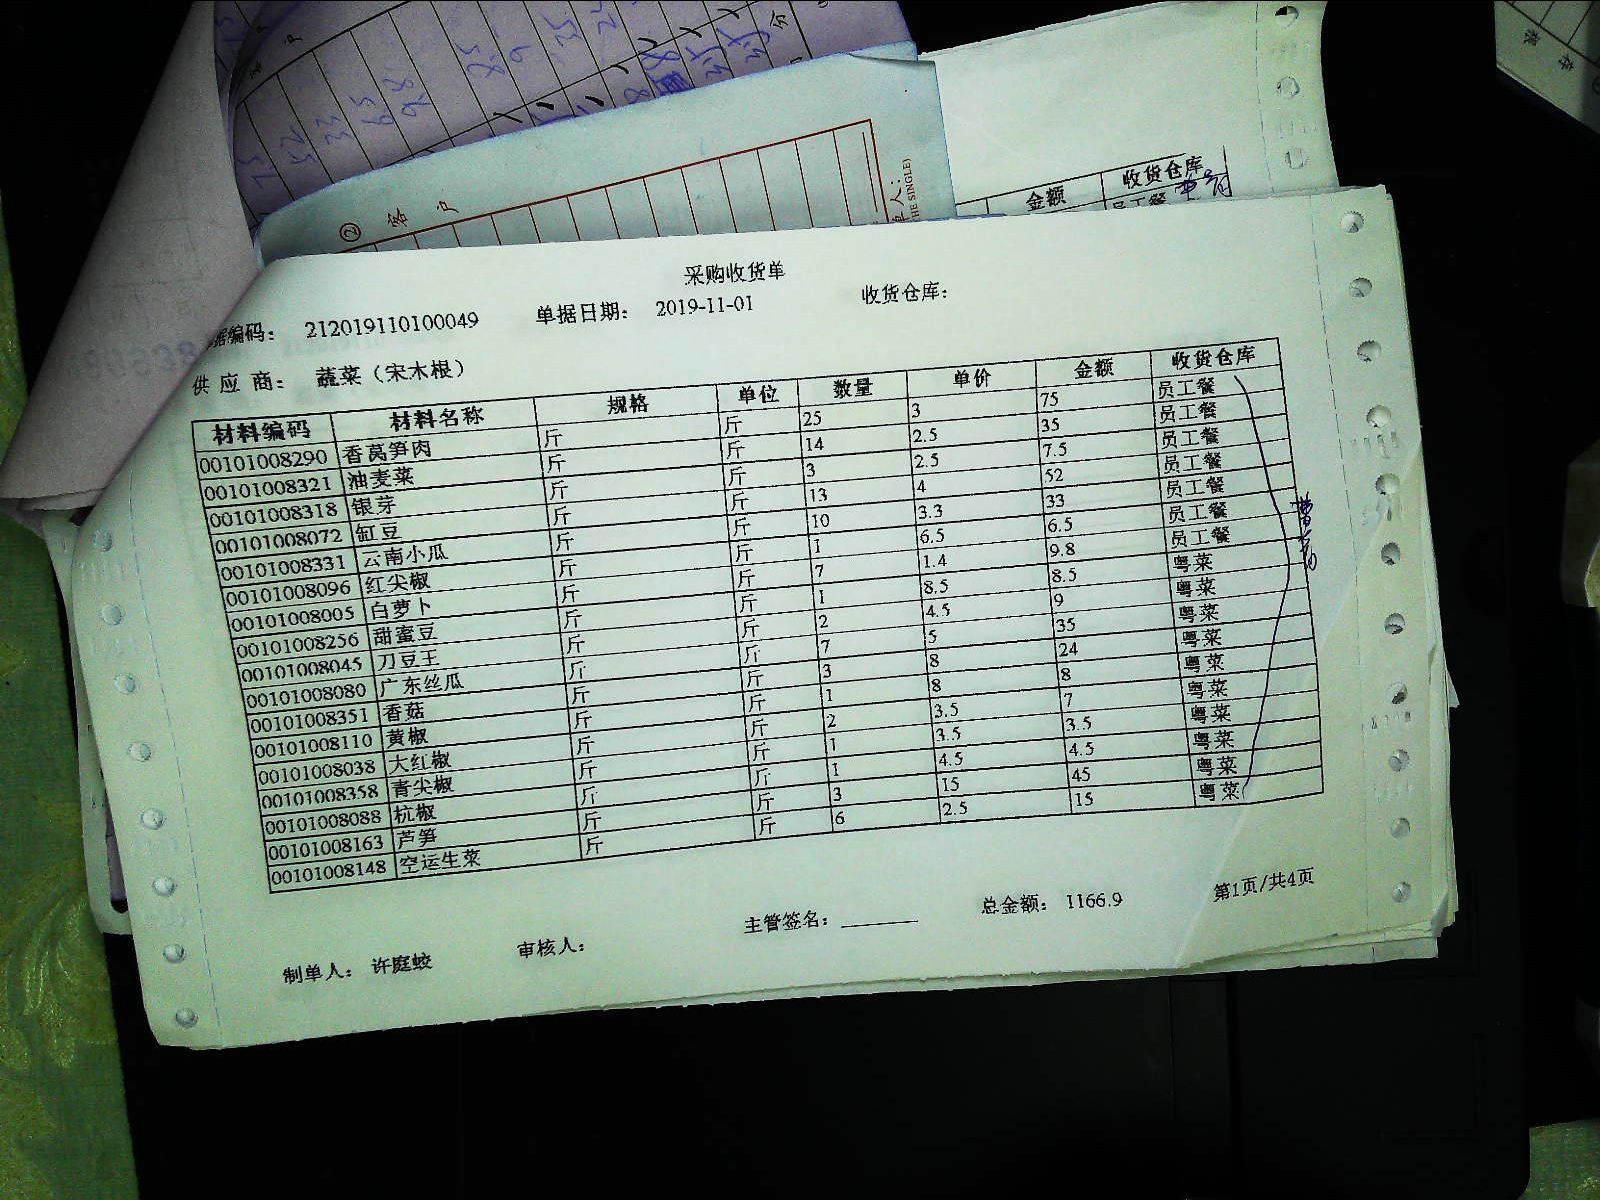 ② 客 户
THE SINGLE)
金额 收货仓库
员工餐
采购收货单
据编码： 212019110100049 单据日期： 2019-11-01 收货仓库：
供 应 商： 蔬菜（宋木根）
材料编码 材料名称 规格 单位 数量 单价 金额 收货仓库
00101008290 香莴笋肉 斤 斤 25 3 75 员工餐
00101008321 油麦菜 斤 斤 14 2.5 35 员工餐
00101008318 银芽 斤 斤 3 2.5 7.5 员工餐
00101008072 缸豆 斤 斤 13 4 52 员工餐
00101008331 云南小瓜 斤 斤 10 3.3 33 员工餐
00101008096 红尖椒 斤 斤 1 6.5 6.5 员工餐
00101008005 白萝卜 斤 斤 7 1.4 9.8 员工餐
00101008256 甜蜜豆 斤 斤 1 8.5 8.5 粤菜
00101008045 刀豆王 斤 斤 2 4.5 9 粤菜
00101008080 广东丝瓜 斤 斤 7 5 35 粤菜
00101008351 香菇 斤 斤 3 8 24 粤菜
00101008110 黄椒 斤 斤 1 8 8 粤菜
00101008038 大红椒 斤 斤 2 3.5 7 粤菜
00101008358 青尖椒 斤 斤 1 3.5 3.5 粤菜
00101008088 杭椒 斤 斤 1 4.5 4.5 粤菜
00101008163 芦笋 斤 斤 3 15 45 粤菜
00101008148 空运生菜 斤 斤 6 2.5 15 粤菜
制单人： 许庭蛟 审核人： 主管签名： 总金额： 1166.9 第1页/共4页